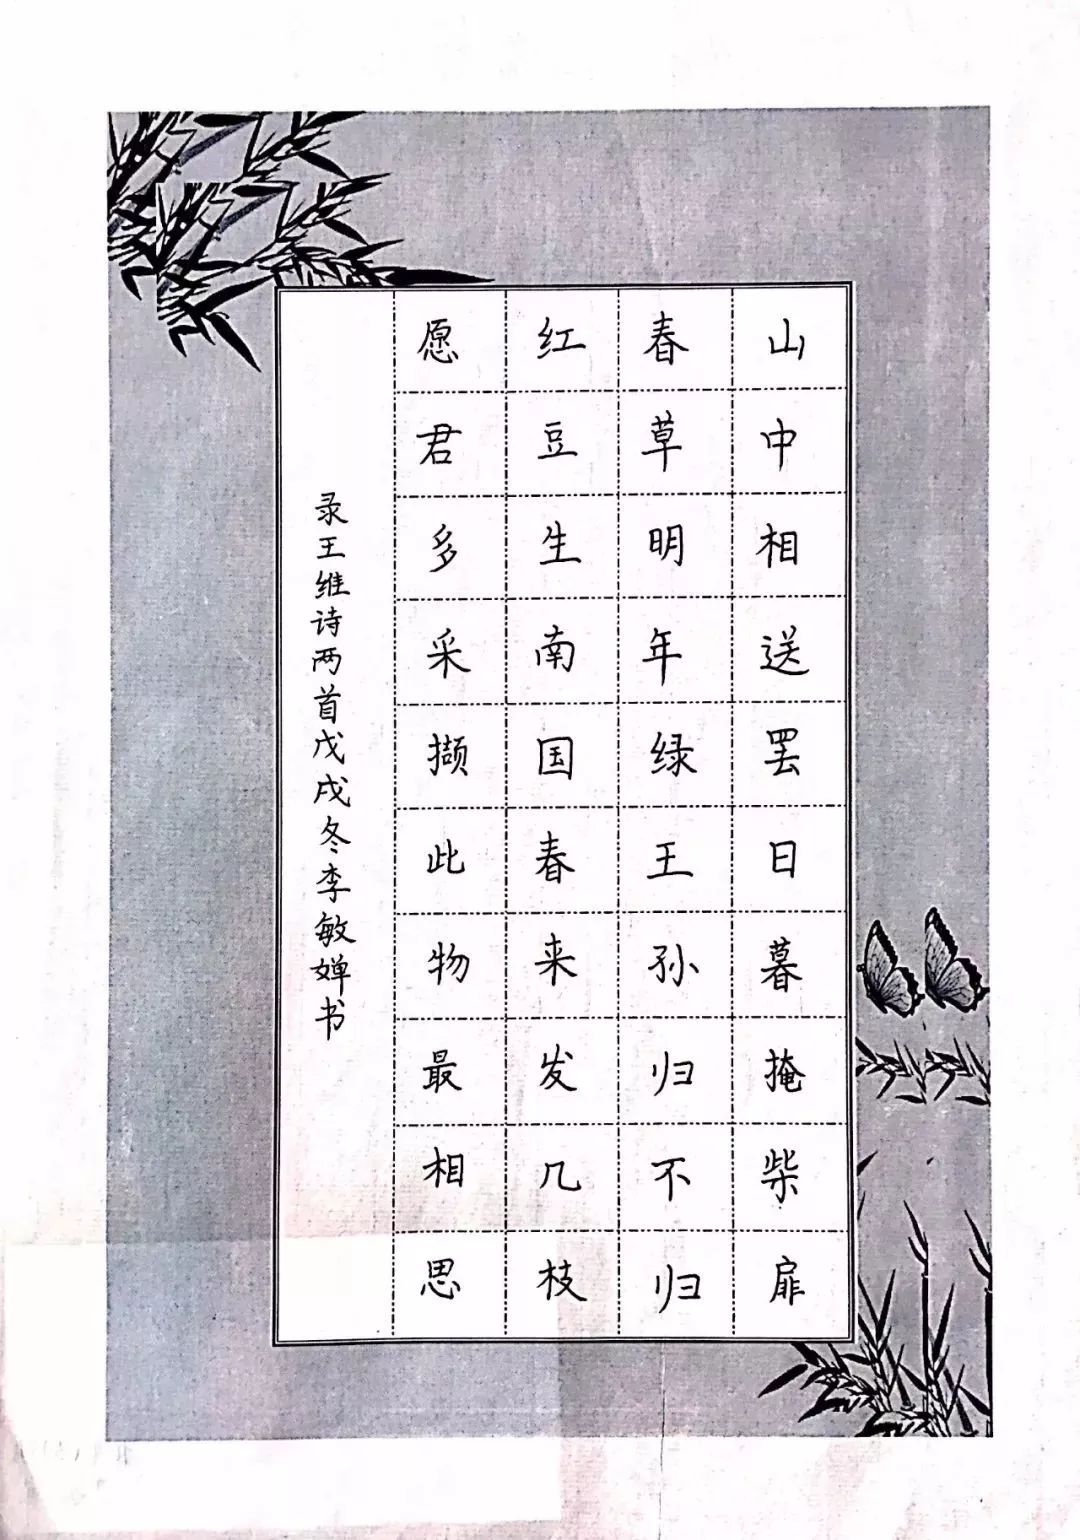 山中相送罢日暮掩柴扉
春草明年绿王孙归不归
红豆生南国春来发几枝
愿君多采撷此物最相思
录王维诗两首戊戌冬李敏婵书